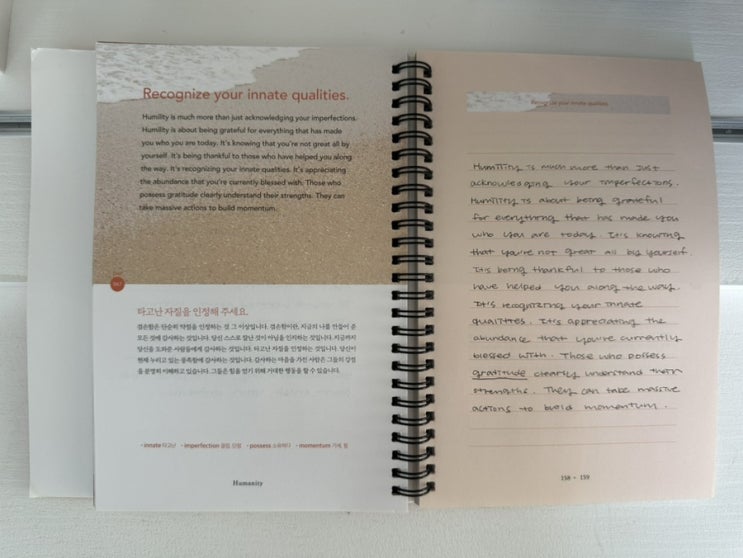 Recognize your innate qualities.
Humility is much more than just acknowledging your imperfections.
Humility is about being grateful for everything that has made
you who you are today. It's knowing that you're not great all by
yourself. It's being thankful to those who have helped you along
the way. It's recognizing your innate qualities. It's appreciating
the abundance that you're currently blessed with. Those who
possess gratitude clearly understand their strengths. They can
take massive actions to build momentum.
타고난 자질을 인정해 주세요.
겸손함은 단순히 약점을 인정하는 것 그 이상입니다. 겸손함이란, 지금의 나를 만들어 준
모든 것에 감사하는 것입니다. 당신 스스로 잘난 것이 아님을 인지하는 것입니다. 지금까지
당신을 도와준 사람들에게 감사하는 것입니다. 타고난 자질을 인정하는 것입니다. 당신이
현재 누리고 있는 풍족함에 감사하는 것입니다. 감사하는 마음을 가진 사람은 그들의 강점
을 분명히 이해하고 있습니다. 그들은 힘을 얻기 위해 거대한 행동을 할 수 있습니다.
• innate 타고난 • imperfection 결함, 단점 • possess 소유하다 • momentum 기세, 힘
Humanity
Recognize your innate qualities.
Humility is much more than just
acknowledging your imperfections.
Humility is about being grateful
for everything that has made you
who you are today. It's knowing
that you're not great all by yourself.
It's being thankful to those who
have helped you along the way.
It's recognizing your innate
qualities. It's appreciating the
abundance that you're currently
blessed with. Those who possess
gratitude clearly understand their
strengths. They can take massive
actions to build momentum.
158 • 159